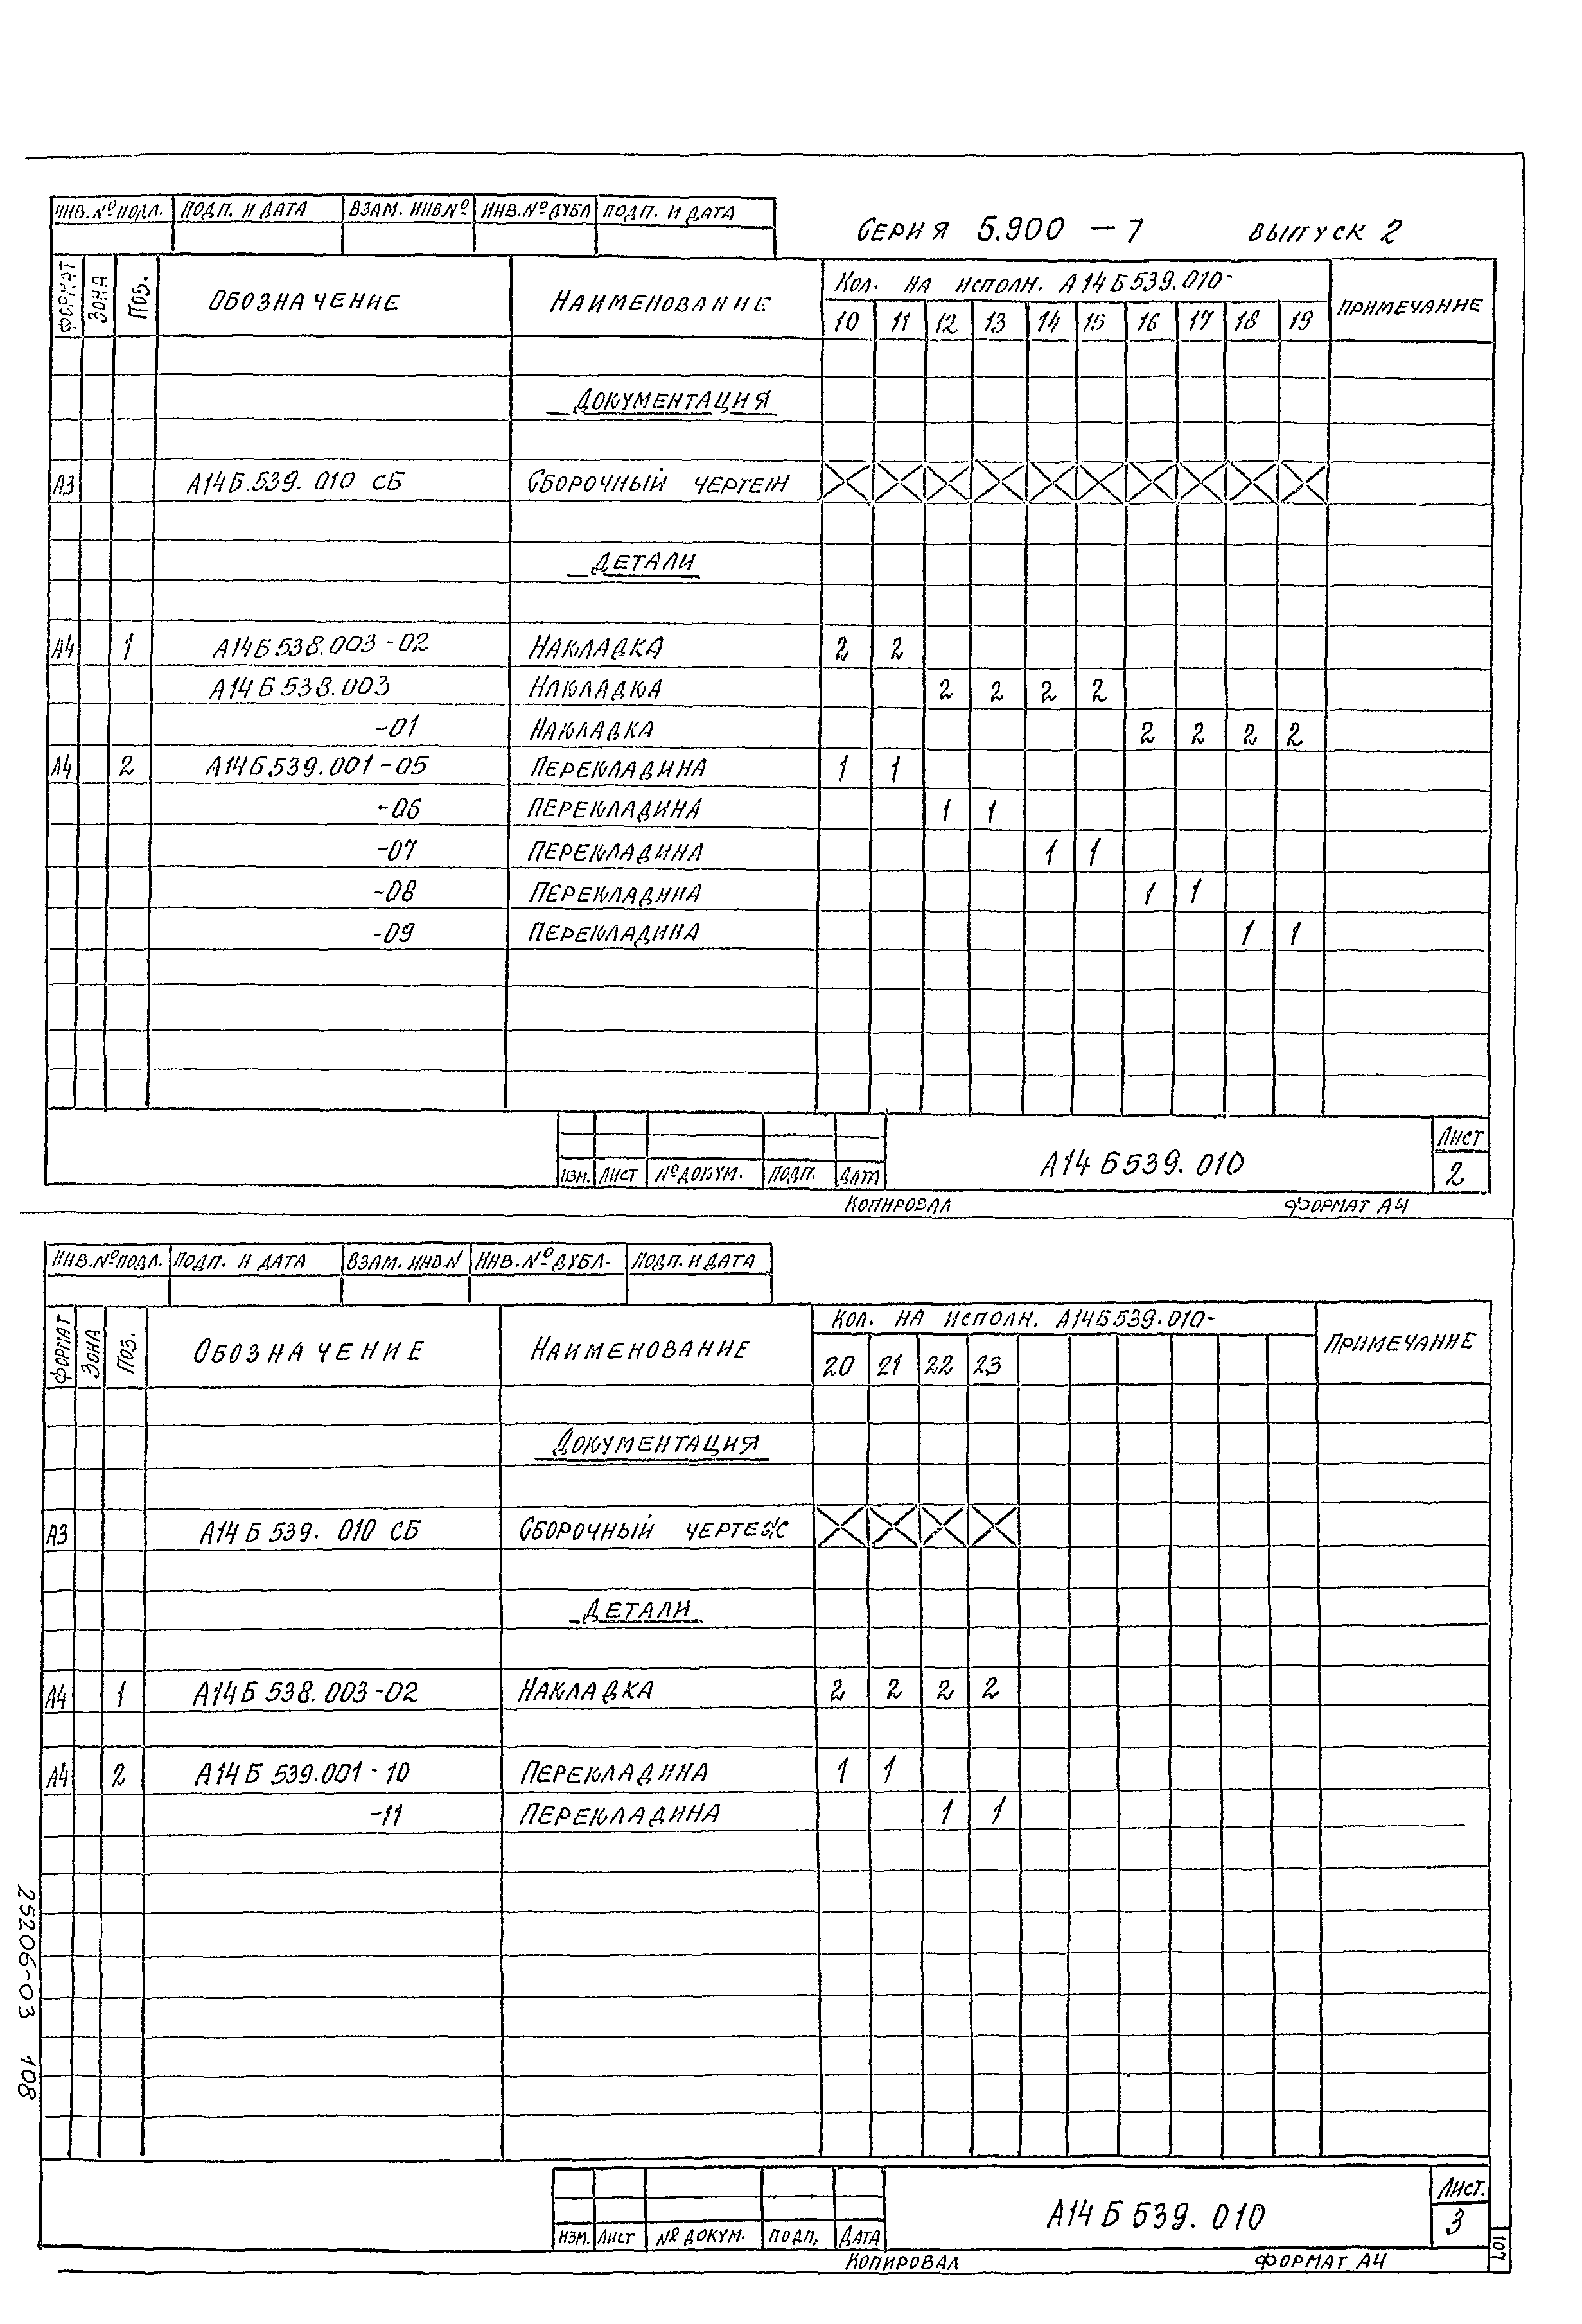 ИНВ.№ ПОДЛ. ПОДП. И ДАТА ВЗАМ. ИНВ.№ ИНВ.№ ДУБЛ ПОДП. И ДАТА
СЕРИЯ 5.900 – 7 ВЫПУСК 2
ФОРМАТ ЗОНА ПОЗ. ОБОЗНАЧЕНИЕ НАИМЕНОВАНИЕ КОЛ. НА ИСПОЛН. А14Б539.010- ПРИМЕЧАНИЕ
10 11 12 13 14 15 16 17 18 19
ДОКУМЕНТАЦИЯ
А3 А14Б.539.010 СБ СБОРОЧНЫЙ ЧЕРТЕЖ
ДЕТАЛИ
А4 1 А14Б538.003-02 НАКЛАДКА 2 2
А14Б538.003 НАКЛАДКА 2 2 2 2
-01 НАКЛАДКА 2 2 2 2
А4 2 А14Б539.001-05 ПЕРЕКЛАДИНА 1 1
-06 ПЕРЕКЛАДИНА 1 1
-07 ПЕРЕКЛАДИНА 1 1
-08 ПЕРЕКЛАДИНА 1 1
-09 ПЕРЕКЛАДИНА 1 1
ИЗМ. ЛИСТ № ДОКУМ. ПОДП. ДАТА А14Б539.010 ЛИСТ 2
КОПИРОВАЛ ФОРМАТ А4
ИНВ.№ ПОДЛ. ПОДП. И ДАТА ВЗАМ. ИНВ.N ИНВ.№ ДУБЛ. ПОДП. И ДАТА
ФОРМАТ ЗОНА ПОЗ. ОБОЗНАЧЕНИЕ НАИМЕНОВАНИЕ КОЛ. НА ИСПОЛН. А14Б539.010- ПРИМЕЧАНИЕ
20 21 22 23
ДОКУМЕНТАЦИЯ
А3 А14Б539.010 СБ СБОРОЧНЫЙ ЧЕРТЕЖ
ДЕТАЛИ
А4 1 А14Б538.003-02 НАКЛАДКА 2 2 2 2
А4 2 А14Б539.001-10 ПЕРЕКЛАДИНА 1 1
-11 ПЕРЕКЛАДИНА 1 1
25206-03 108
ИЗМ. ЛИСТ № ДОКУМ. ПОДП. ДАТА А14Б539.010 ЛИСТ. 3
КОПИРОВАЛ ФОРМАТ А4
107